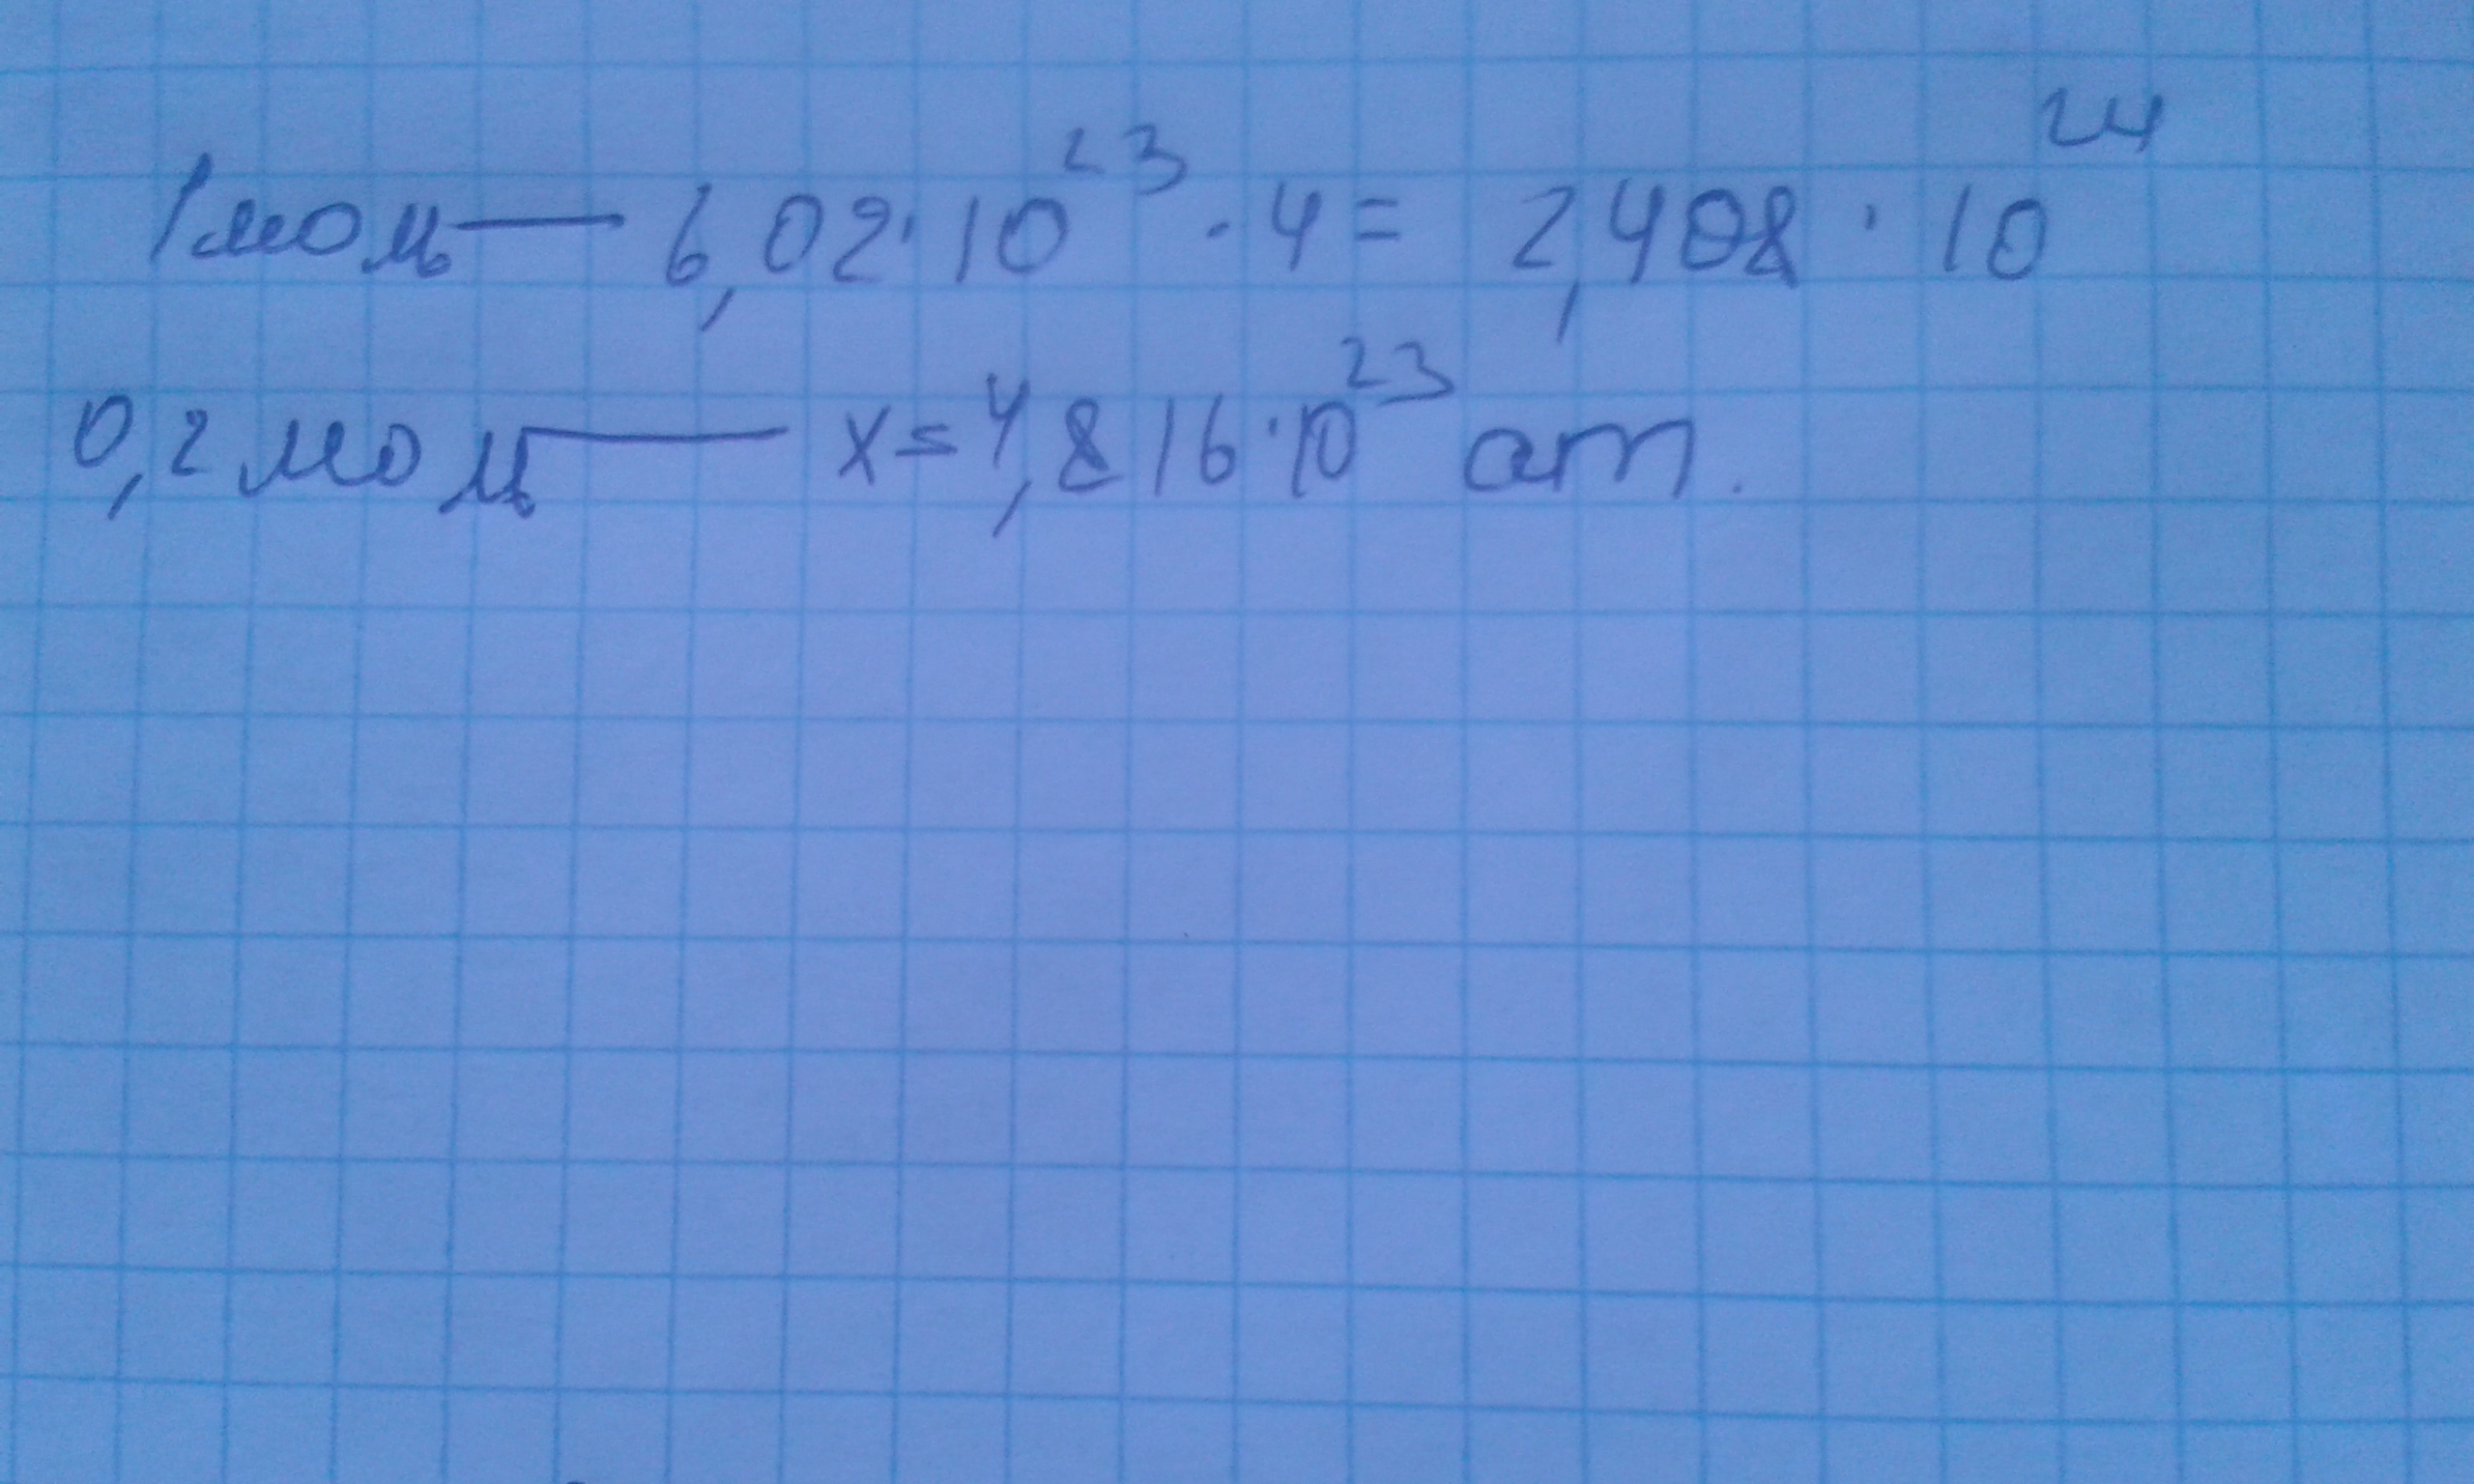 1 моль — 6,02·10²³ · 4 = 2,408 · 10²⁴
0,2 моль — x = 4,816·10²³ ат.